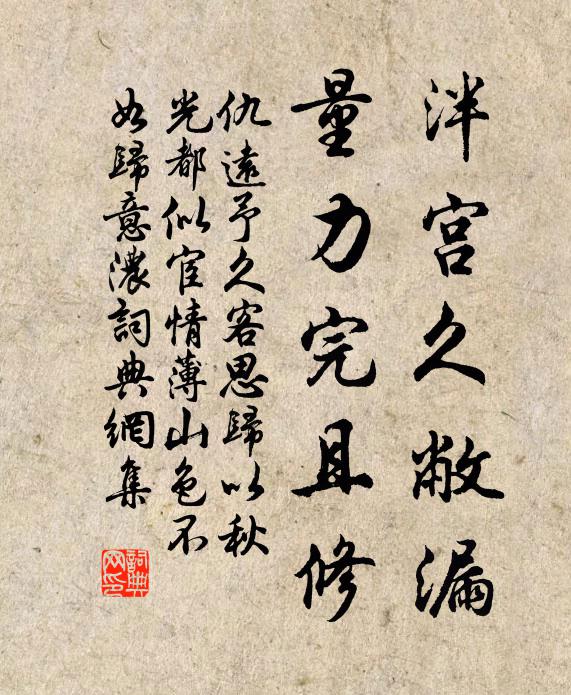 泮宫久敝漏
量力完且修
仇遠予久客思歸以秋
光都似宦情薄山色不
如歸意濃詞典網集
詞典网印